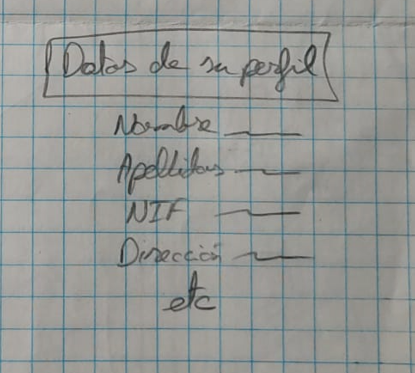 Datos de su perfil
Nombre ____
Apellidos ____
NIF ____
Dirección ____
etc